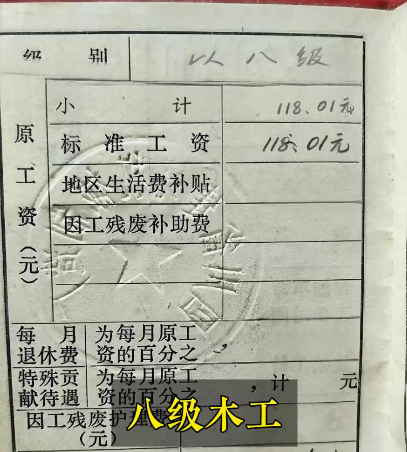 级 别 以八级
小 计 118.01元
原工资(元)
标准工资 118.01元
地区生活费补贴
因工残废补助费
每月退休费 为每月原工资的百分之,
特殊贡献待遇 为每月原工资的百分之 ,计 元
因工残废护理费(元)
八级木工